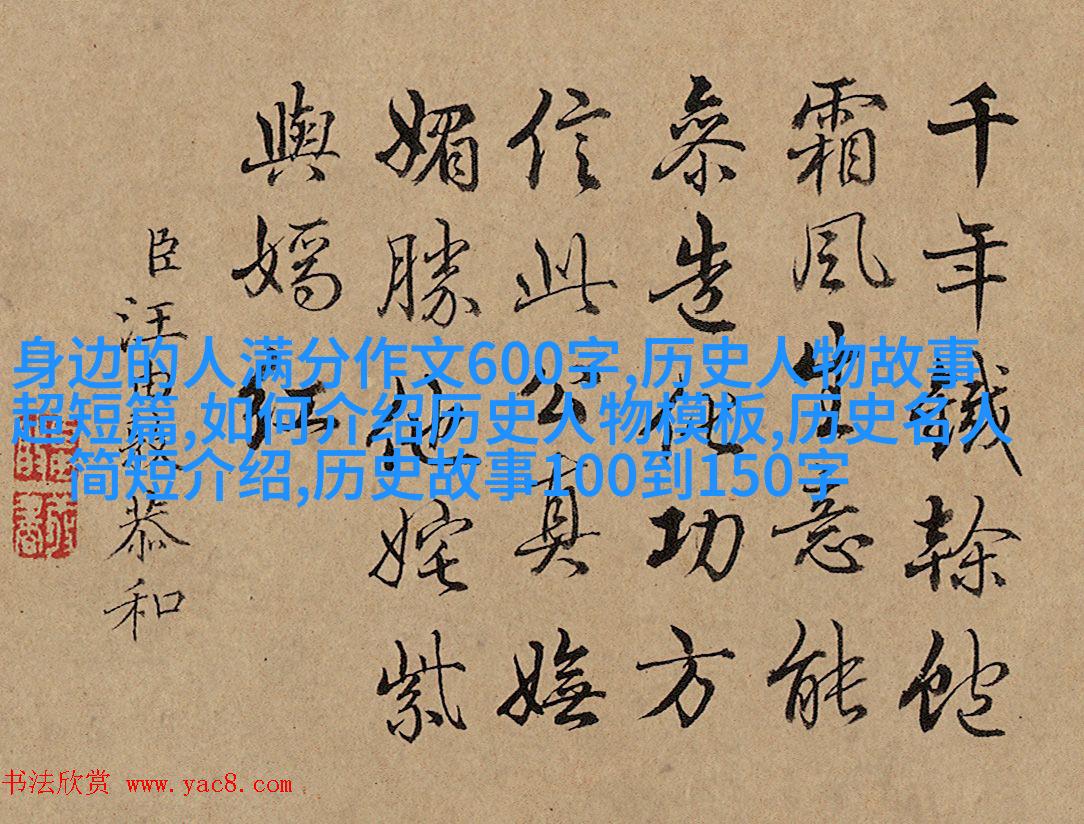 千年鐵榦飽
霜風生意能
參造化功方
信此公真嫵
媚勝他姹紫
與嫣紅
臣汪由敦恭和
身边的人满分作文600字,历史人物故事
超短篇,如何介绍历史人物模板,历史名人
简短介绍,历史故事100到150字
书法欣赏 www.yac8.com